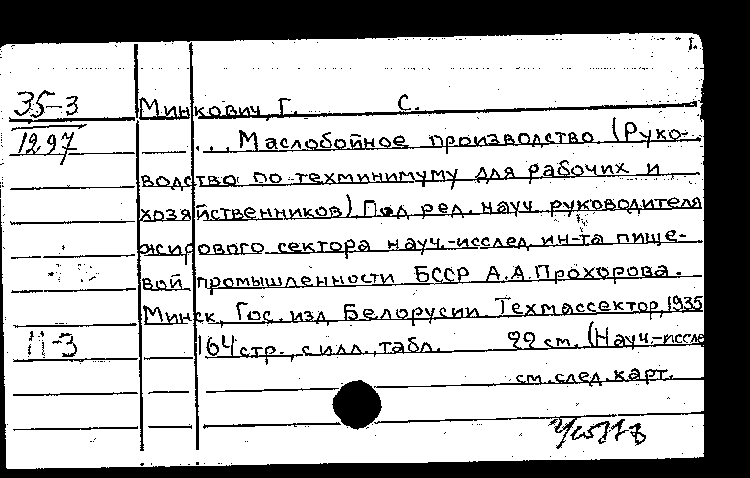 1.
35-3 Минкович, Г. С.
1297 ... Маслобойное производство (Руко-
водство по техминимуму для рабочих и
хозяйственников) Под ред. науч. руководителя
жирового сектора науч.-исслед. ин-та пище-
вой промышленности БССР А.А.Прохорова.
Минск, Гос. изд. Белорусии. Техмассектор, 1935
11-3 164 стр., с илл., табл. 22 см. (Науч.-иссле
см. след. карт.